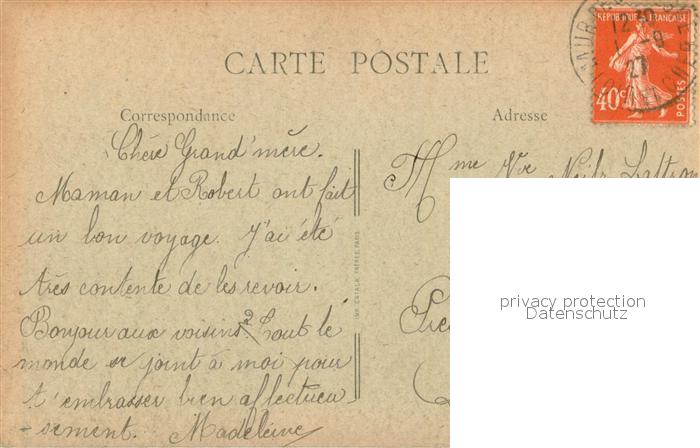 REPUBLIQUE FRANÇAISE
40c POSTES
12 30
27
CARTE POSTALE
Correspondance
Adresse
Chère Grand'mère.
Maman et Robert ont fait
un bon voyage. J'ai été
très contente de les revoir.
Bonjour aux voisins. Tout le
monde se joint à moi pour
t'embrasser bien affectueu
-sement. Madeleine
Mme Vve
IMP. CATALA FRÈRES, PARIS
privacy protection
Datenschutz